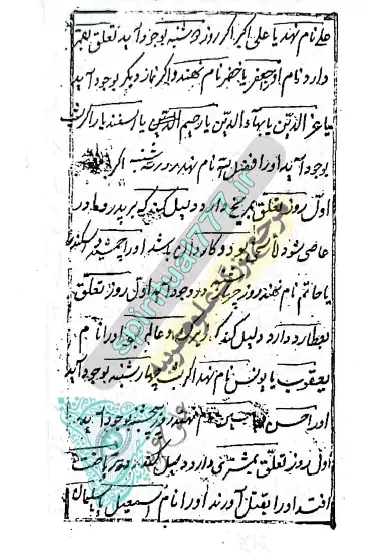 علی نام نهند یا علی اکبر اگر روز دوشنبه بوجود آید تعلق بقمر
دارد نام او جعفر یا خضر نام نهند و اگر نماز دیگر بوجود آید
یا عز الدین یا بهاء الدین یا رحیم الدین یا اسفندیار اگر شب
بوجود آید او را فضل الله نام نهند روز سه شنبه اگر
اول روز تعلق بمریخ دارد دلیل کند که بر پدر و مادر
عاصی شود و کاردان باشد او را جمشید یا سکندر
یا حاتم نام نهند روز چهارشنبه در وجود آید اول روز تعلق
بعطارد دارد دلیل کند که و عالم او را نام
یعقوب یا یونس نام نهد اگر شب چهارشنبه بوجود آید
او را حسن یا حسین نام نهند روز پنجشنبه بوجود آید
اول روز تعلق بمشتری دارد دلیل کند که ریاضت
افتد او را بقتل آورند او را نام اسمعیل یا سلیمان
spiritual777.ir